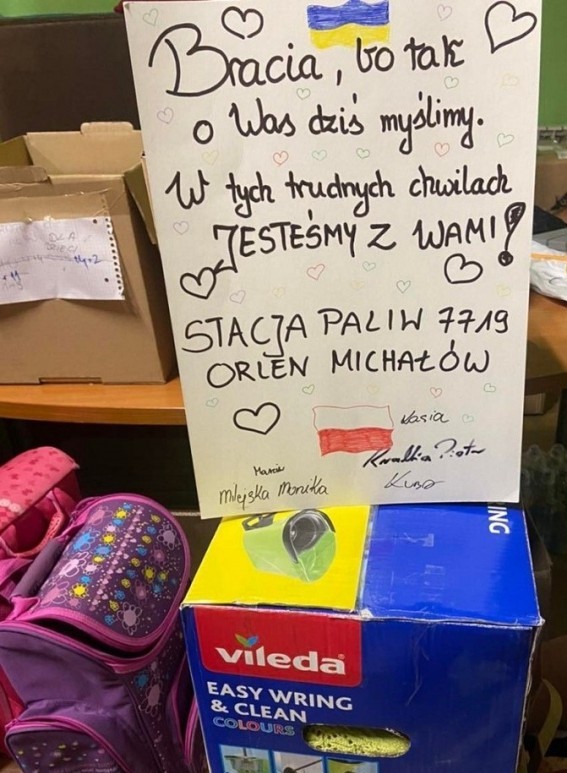 Bracia, bo tak
o Was dziś myślimy.
W tych trudnych chwilach
JESTEŚMY Z WAMI!
STACJA PALIW 7719
ORLEN MICHAŁÓW
Kasia
Milejska Monika
Kuba
DLA
ING
vileda
EASY WRING
& CLEAN
COLOURS